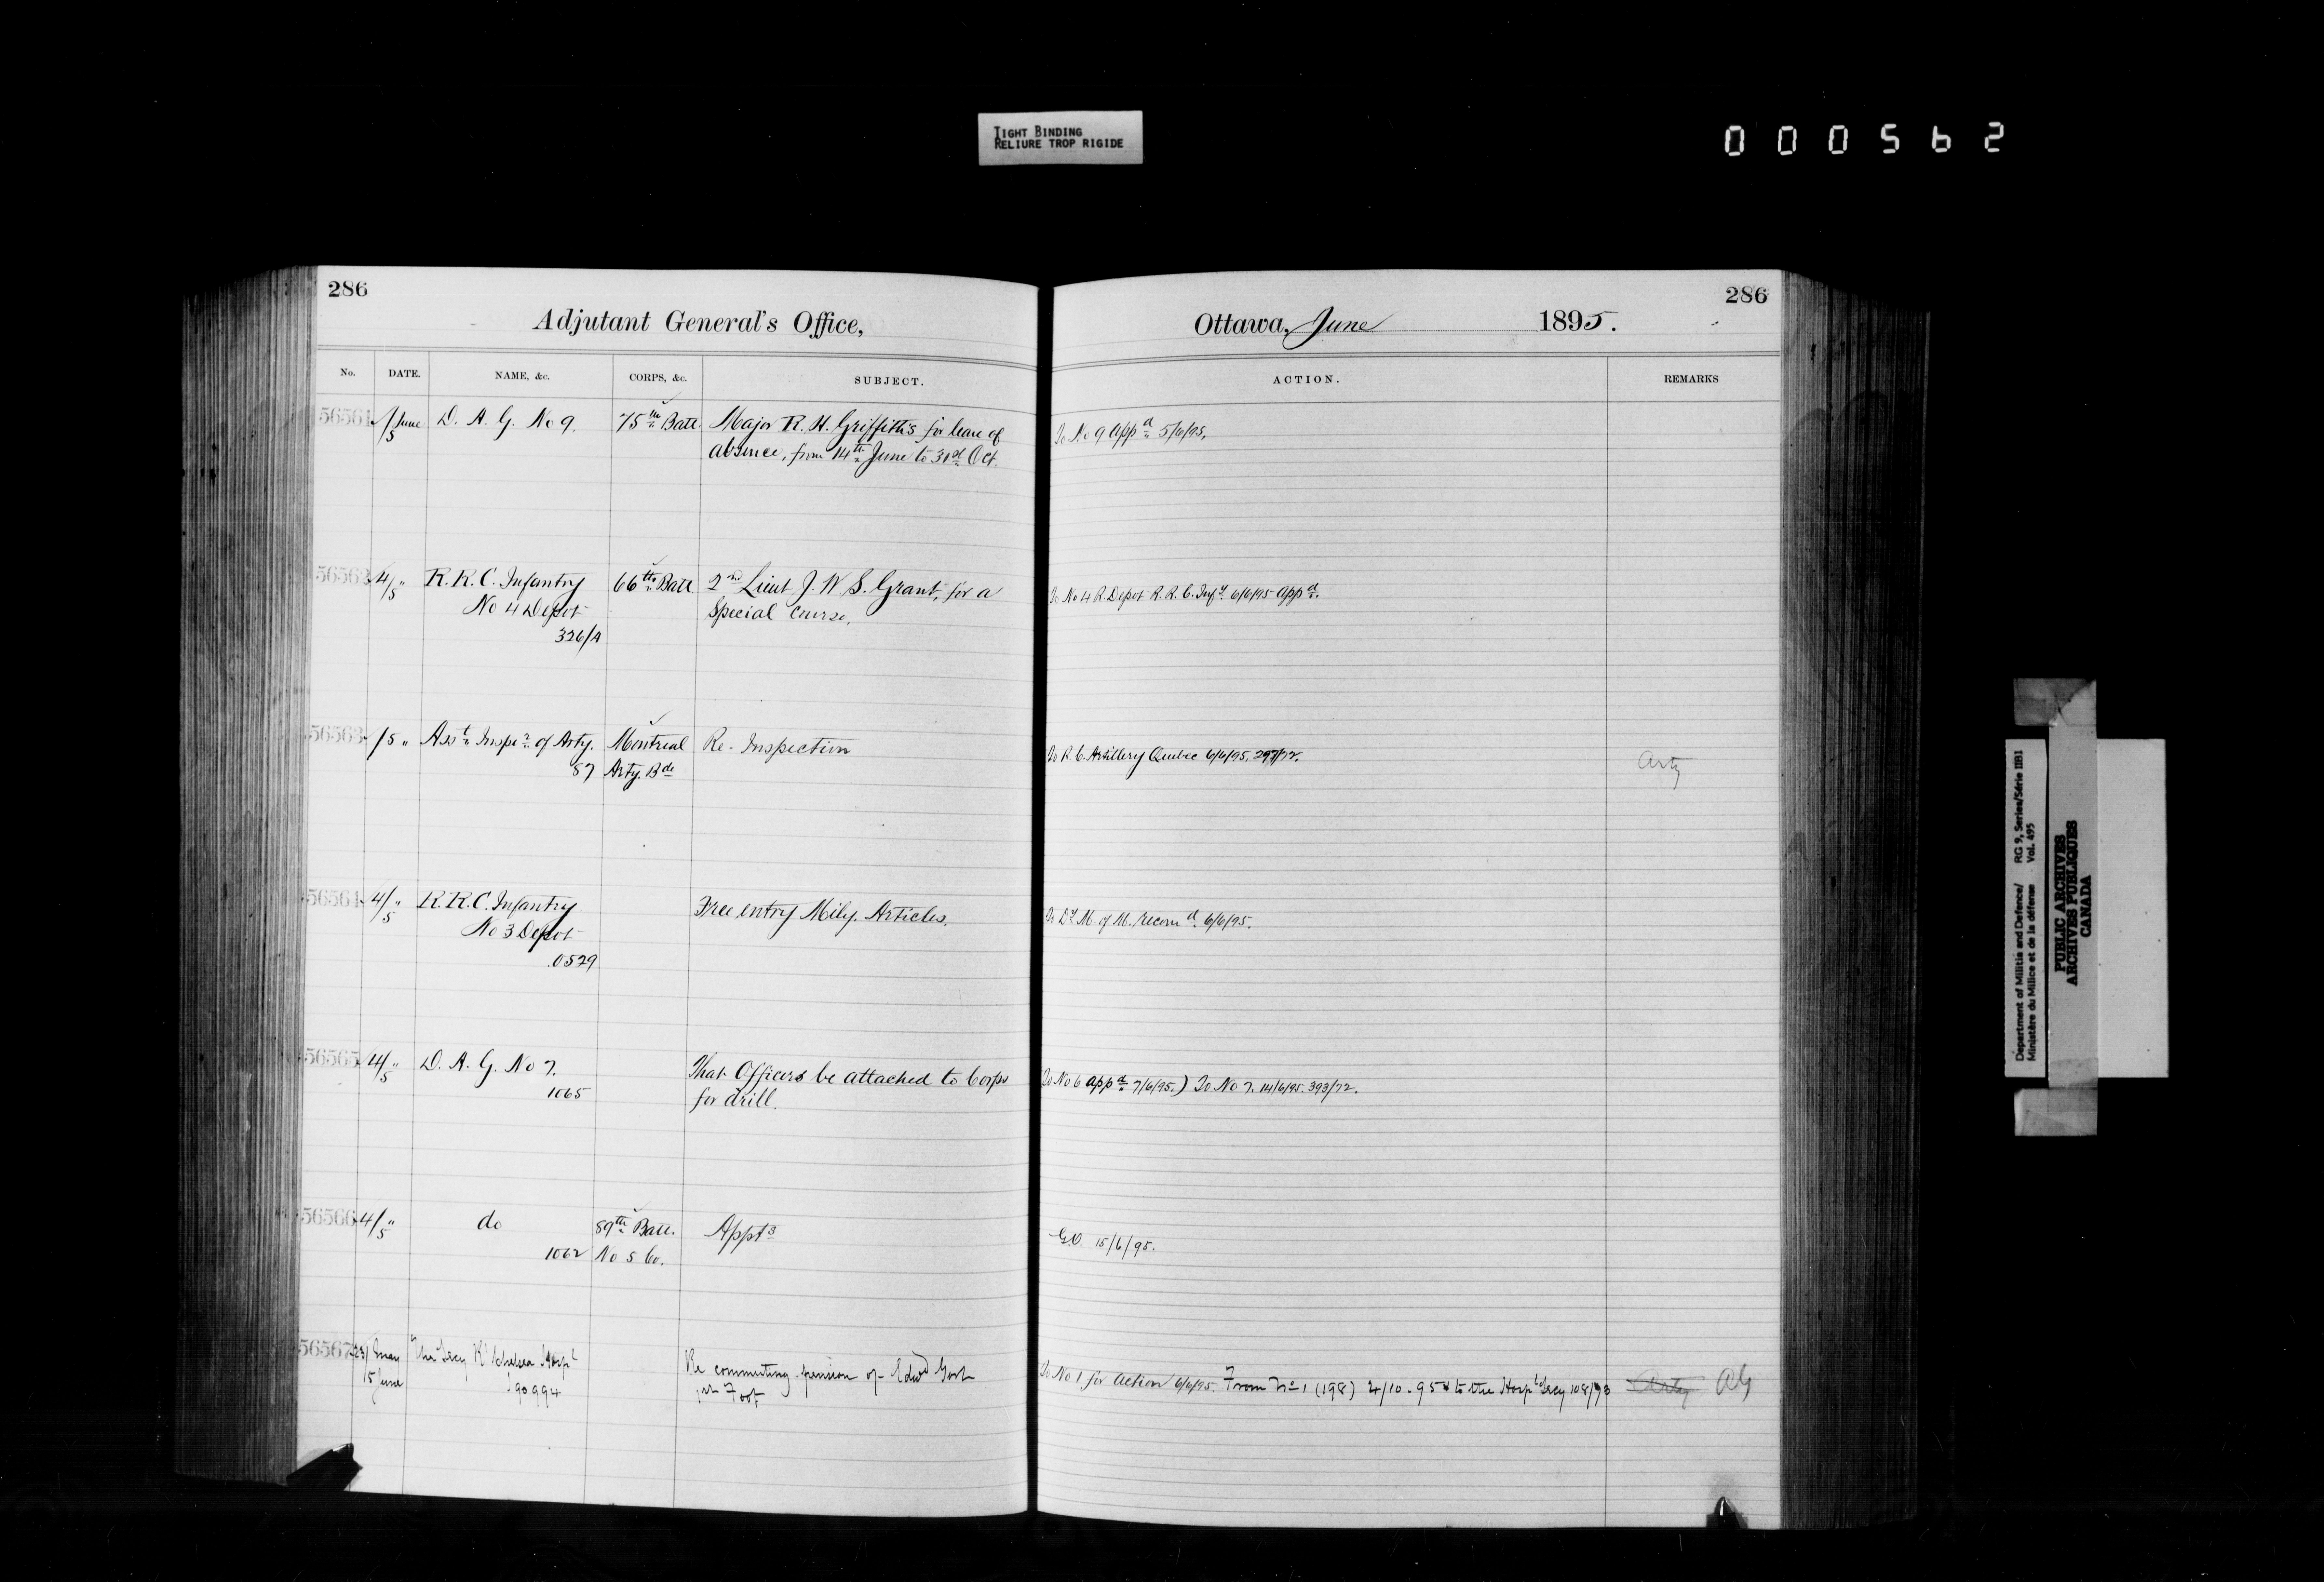 TIGHT BINDING
RELIURE TROP RIGIDE
000562
286
Adjutant General's Office,
No. DATE. NAME, &c. CORPS, &c. SUBJECT.
56561 /5 June D. A. G. No 9. 75th Batt. Major R. H. Griffiths for leave of
absence, from 14th June to 31st Oct.
56562 4/5 " R. R. C. Infantry 66th Batt 2nd Lieut J. W. S. Grant, for a
No 4 Depot Special Course.
326/A
56563 /5 " Asst Inspr of Arty. Montreal Re- Inspection
87 Arty. Bde
56564 4/5 " R. R. C. Infantry Free entry Mily. Articles.
No 3 Depot
0529
56565 4/5 " D. A. G. No 7. That Officers be attached to Corps
1065 for drill.
56566 4/5 " do 89th Batt. Appts
1062 No 5 Co.
56567 23/ May The Secy Rl Chelsea Hospl Re commuting pension of Edwd
15 June 90994 1st Foot
286
Ottawa, June 1895.
ACTION. REMARKS
To No 9 appd 5/6/95.
To No 4 R. Depot R. R. C. Infy 6/6/95 appd.
To R. C. Artillery Quebec 6/6/95. 297/72. Arty
To Dy M. of M. recomd 6/6/95.
To No 6 appd 7/6/95.) To No 7. 14/6/95. 393/72.
G.O. 15/6/95.
To No 1 for action 6/6/95. From No 1 (198) 2/10-95 & to the Hospl Secy 108/73 Arty AG
Department of Militia and Defence/ RG 9, Series/Série IIB1
Ministère du Milice et de la défense Vol. 495
PUBLIC ARCHIVES
ARCHIVES PUBLIQUES
CANADA